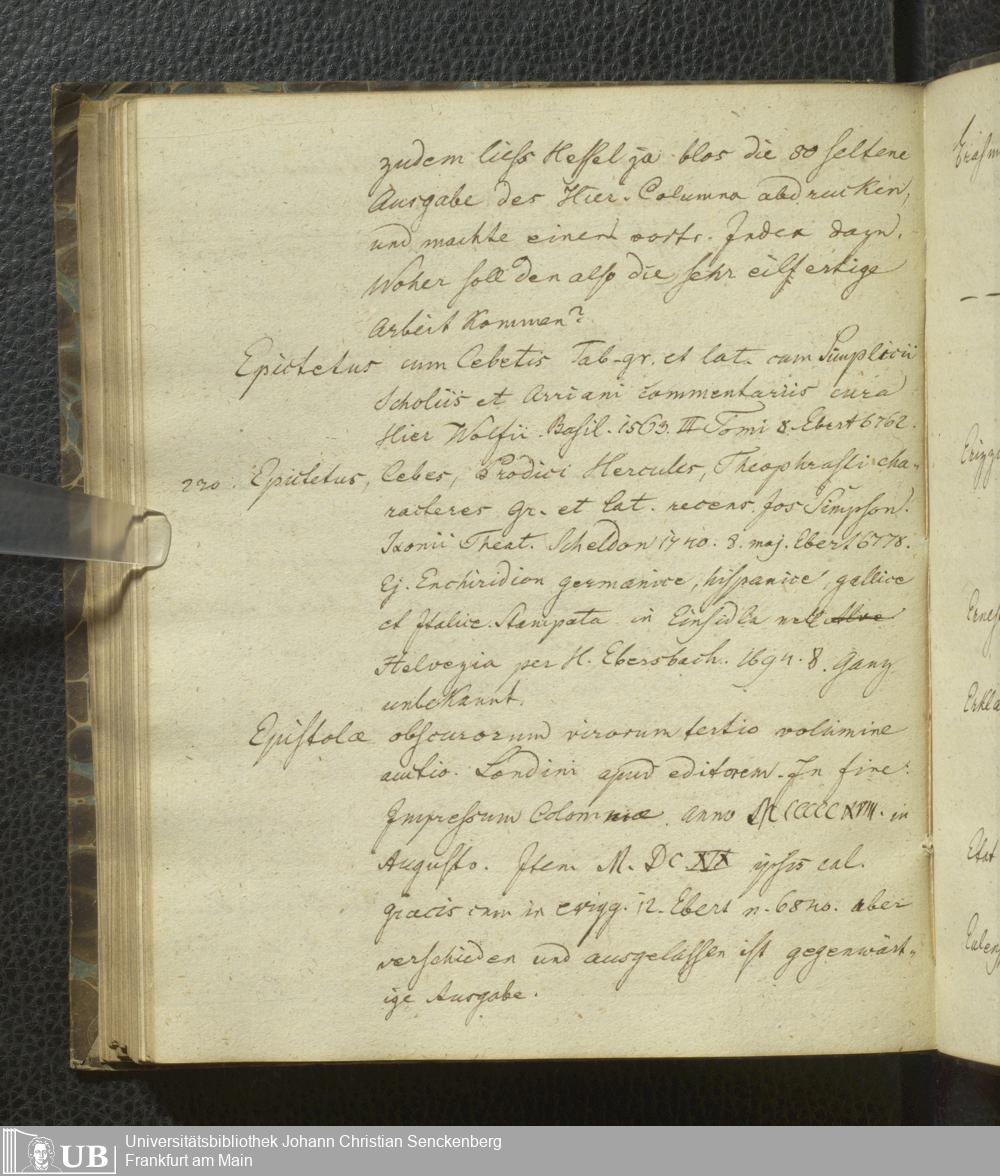 zudem liess Hessel ja blos die so seltene
Ausgabe des Hier. Columna abdrucken,
und machte einen Index dazu.
Woher soll den also die sehr eilfertige
Arbeit Kommen?
Epictetus cum Cebetis Tab. gr. et lat. cum Simplicii
Scholiis et Arriani commentariis cura
Hier Wolfii. Basil. 1563. III Tomi 8. Ebert 6762.
220. Epictetus, Cebes, Prodici Hercules, Theophrasti cha-
racteres gr. et lat. recens. Jos Simpson.
Ixonii Theat. Scheldon 1740. 8. maj. Ebert 6778.
Ej. Enchiridion germanice, hispanice, gallice
et Italice. Stampata in Einsidla nell
Helvezia per H. Ebersbach. 1694. 8. Ganz
unbekannt.
Epistolæ obscurorum virorum tertio volumine
auctio. Londini apud editorem. In fine:
Impressum Coloniæ anno MCCCCCXVIII. in
Augusto. Item M. DC XIX ipsis cal.
græcis cum in 12. Ebert n. 6840. aber
verschieden und ausgelassen ist gegenwärt-
ige Ausgabe.
Erasm
Erizzo
Ernes
Erklä
Etat
Eulen
UB Universitätsbibliothek Johann Christian Senckenberg
Frankfurt am Main